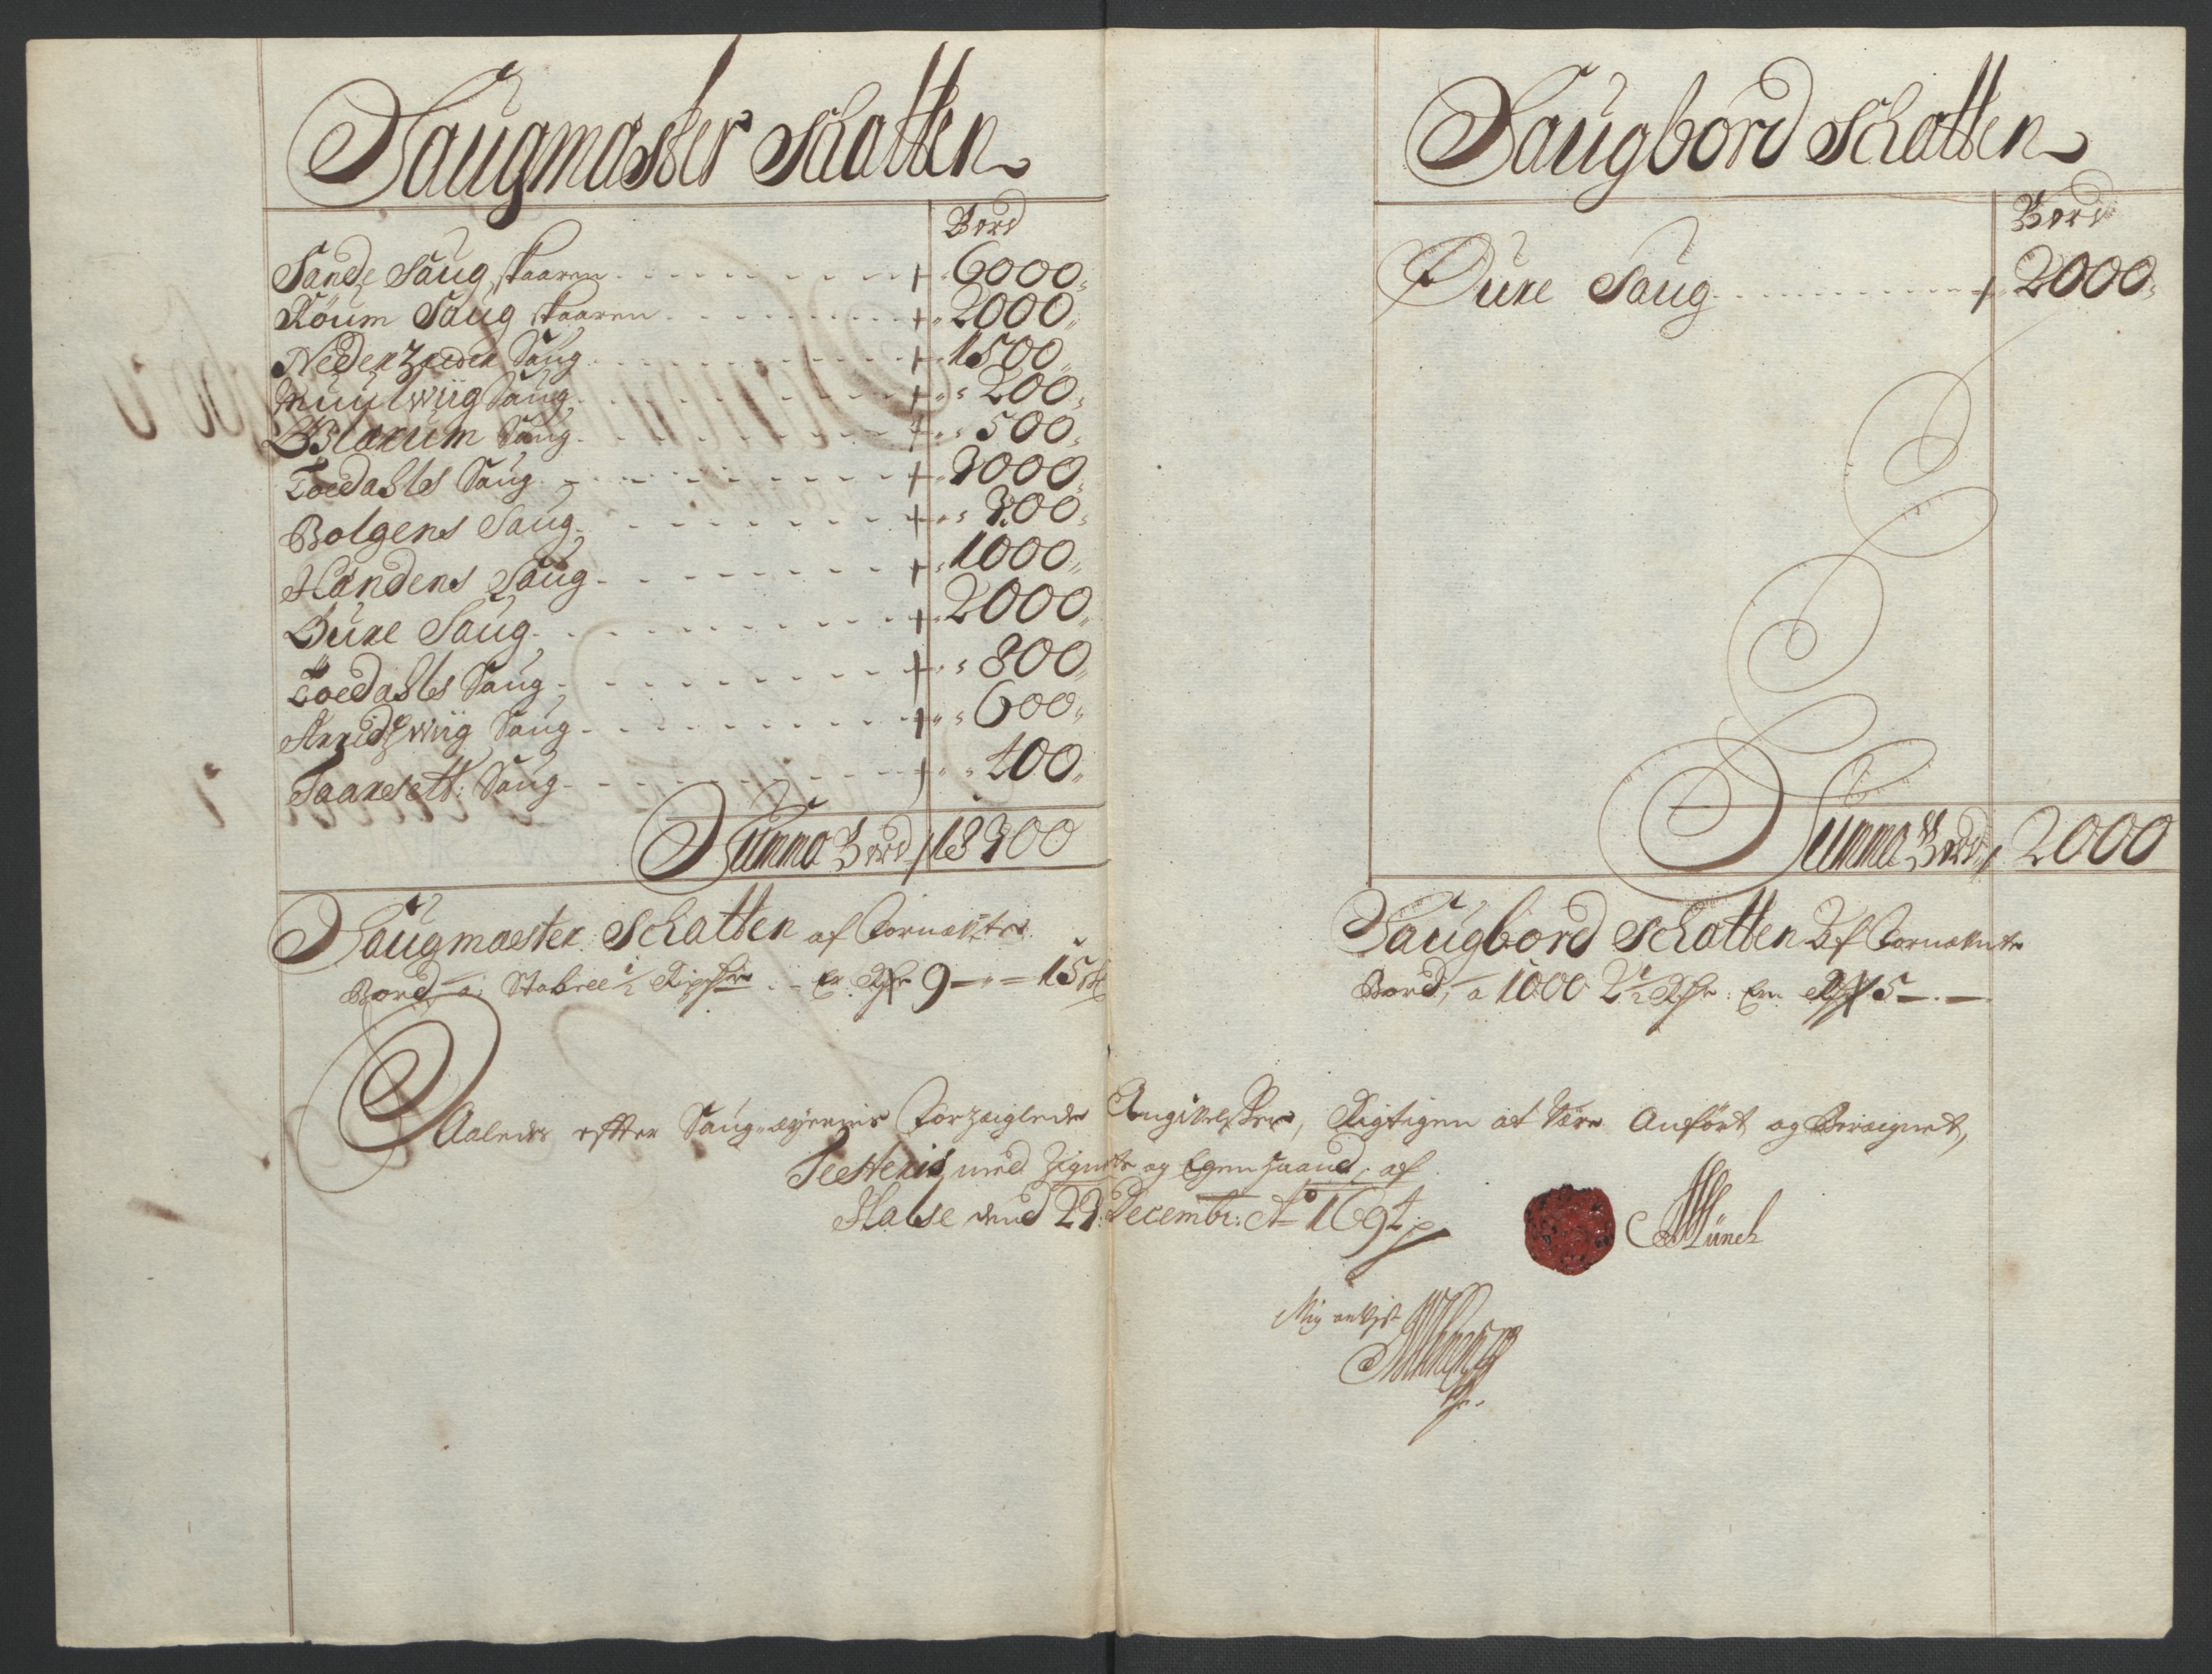 Saugmæster Schatten
Bord
Sande Saug, skaaren 6000
Röum Saug skaaren 2000
Nederzreder Saug 1500
Muulwiig Saug 200
Ohlarum Saug 500
Toedahls Saug 3000
Bolgens Saug 300
Handens Saug 1000
Öure Saug 2000
Toedahls Saug 800
Arridswiig Saug 600
Taaresett: Saug 400
Summa Bord 18300
Saugmæster Schatten af Fornæfnte
Bord, a: Stabree ½ Rixdlr Er Rdr 9 – „ – 15 s
Saugbord Schatten
Bord
Öure Saug 2000
Summa Bord 2000
Saugbord Schatten Af Fornæfnte
Bord, a 1000 2½ Rdr: Er Rdr 5 – . –
Saaledis efter Saug-eyernis Forzeiglede Angifvelser, Rigtigen at være Anfört og Beregnet,
Testeris med Zignete og Egen haand, af
Halse dend 23: Decembr: Ao 1694
Münch
Mig anvist